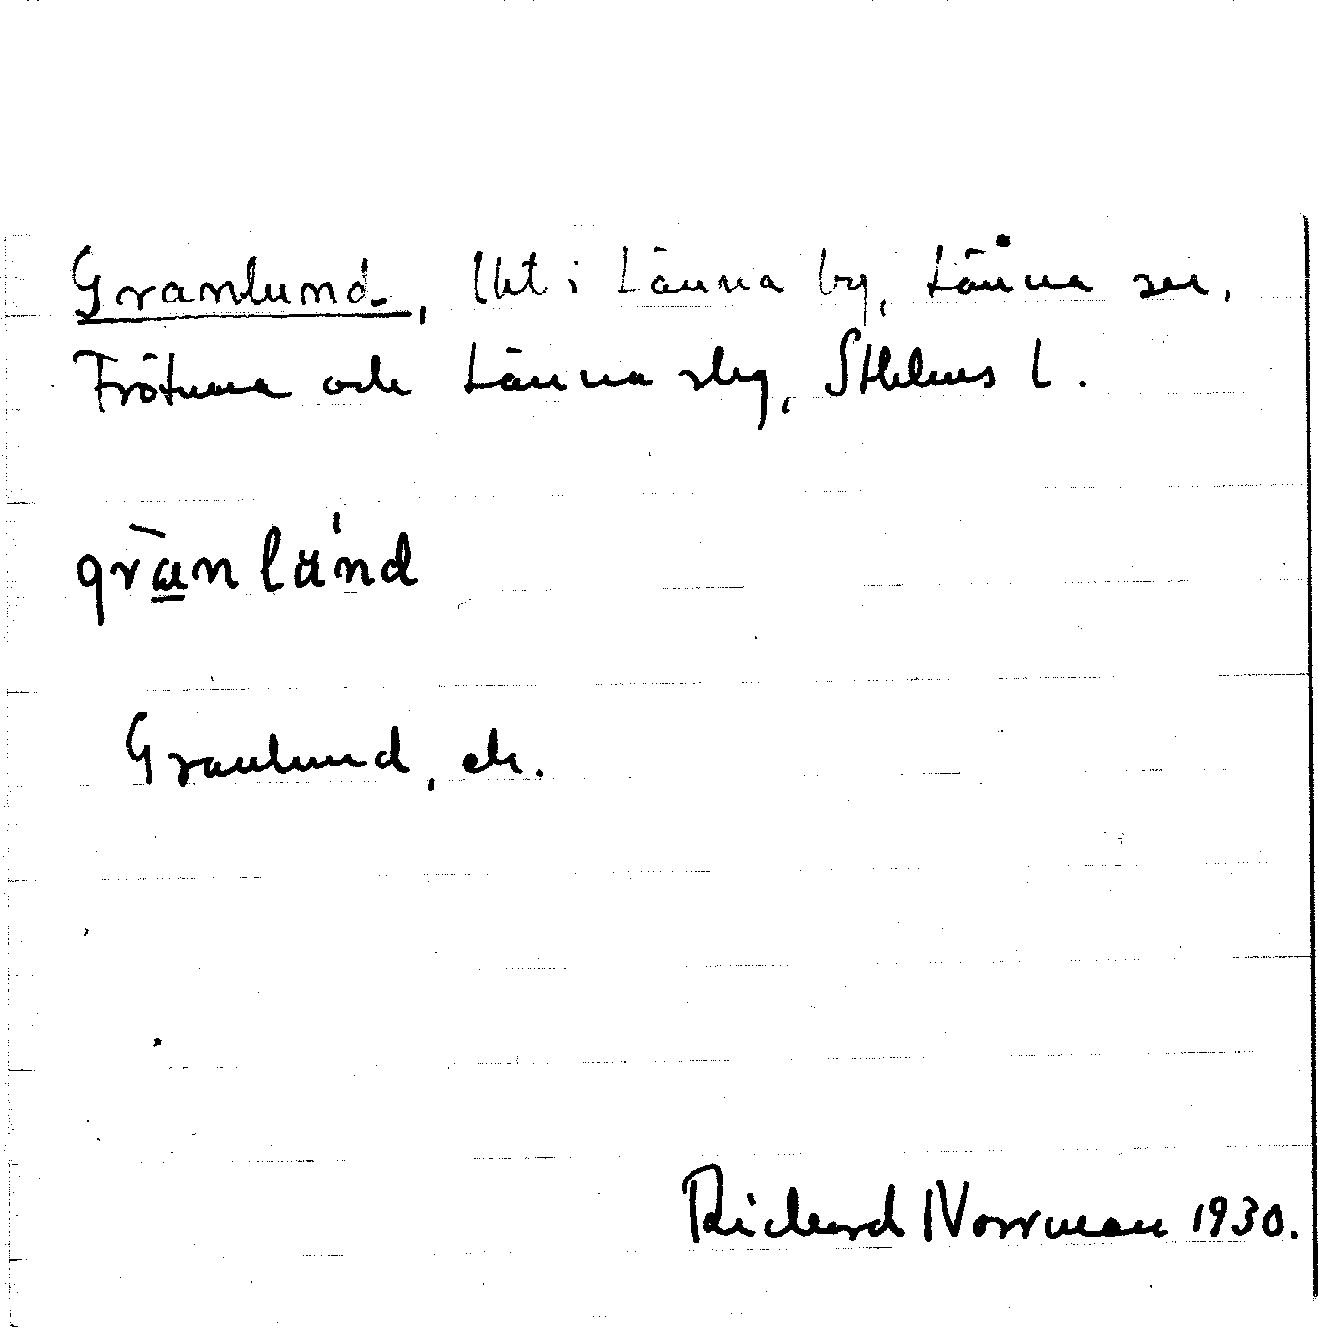 Granlund, lht i Länna by, Länna sn,
Frötuna och Länna skg, Sthlms l.
grànlánd
Granlund, ek.
Richard Norrman 1930.